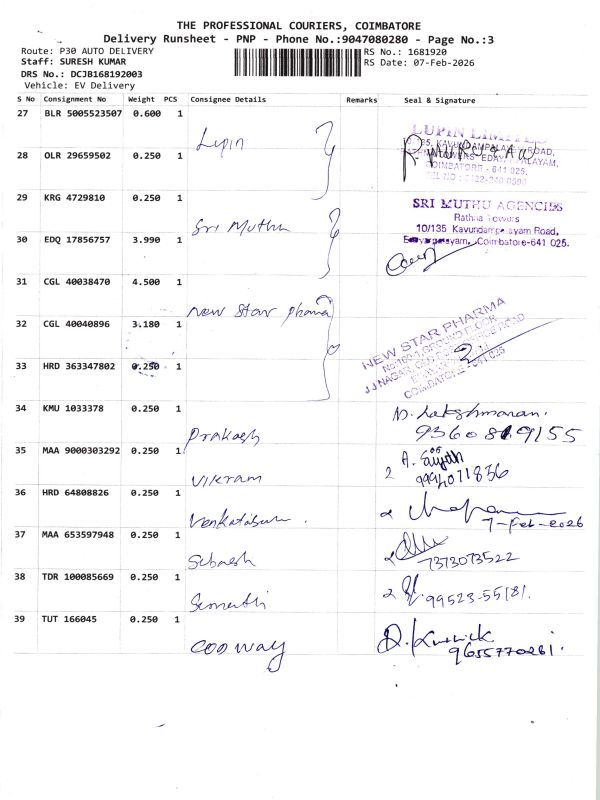 THE PROFESSIONAL COURIERS, COIMBATORE
Delivery Runsheet - PNP - Phone No.:9047080280 - Page No.:3
Route: P30 AUTO DELIVERY
RS No.: 1681920
Staff: SURESH KUMAR
RS Date: 07-Feb-2026
DRS No.: DCJB168192003
Vehicle: EV Delivery
S No Consignment No Weight PCS Consignee Details Remarks Seal & Signature
27 BLR 5005523507 0.600 1
Lupin
LUPIN LIMITED
28 OLR 29659502 0.250 1
COIMBATORE - 641 025.
29 KRG 4729810 0.250 1
Sri Muthu
SRI MUTHU AGENCIES
Rathna Towers
10/135 Kavundampalayam Road,
30 EDQ 17856757 3.990 1
Coimbatore-641 025.
31 CGL 40038470 4.500 1
New Star Pharma
NEW STAR PHARMA
32 CGL 40040896 3.180 1
33 HRD 363347802 0.250 1
34 KMU 1033378 0.250 1
Prakash
N. Lakshmanan.
9360819155
35 MAA 9000303292 0.250 1
Vikram
A.
9994071836
36 HRD 64808826 0.250 1
7-Feb-2026
37 MAA 653597948 0.250 1
Subash
7373073522
38 TDR 100085669 0.250 1
99523-55181.
39 TUT 166045 0.250 1
coo way
9655770261.